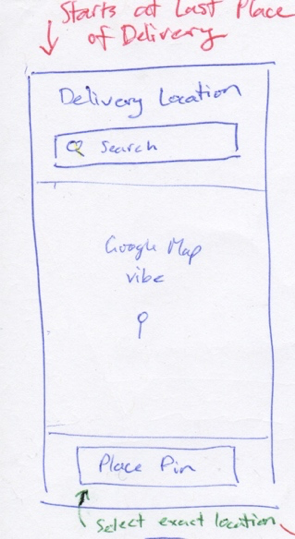 Starts at Last Place
of Delivery
Delivery Location
Search
Google Map
vibe
Place Pin
Select exact location